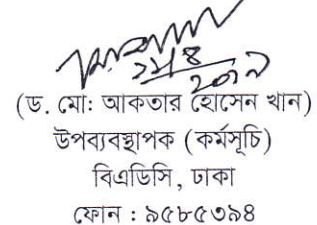 (ড. মো: আকতার হোসেন খান)
উপব্যবস্থাপক (কর্মসূচি)
বিএডিসি, ঢাকা
ফোন : ৯৫৮৫৩৯৪